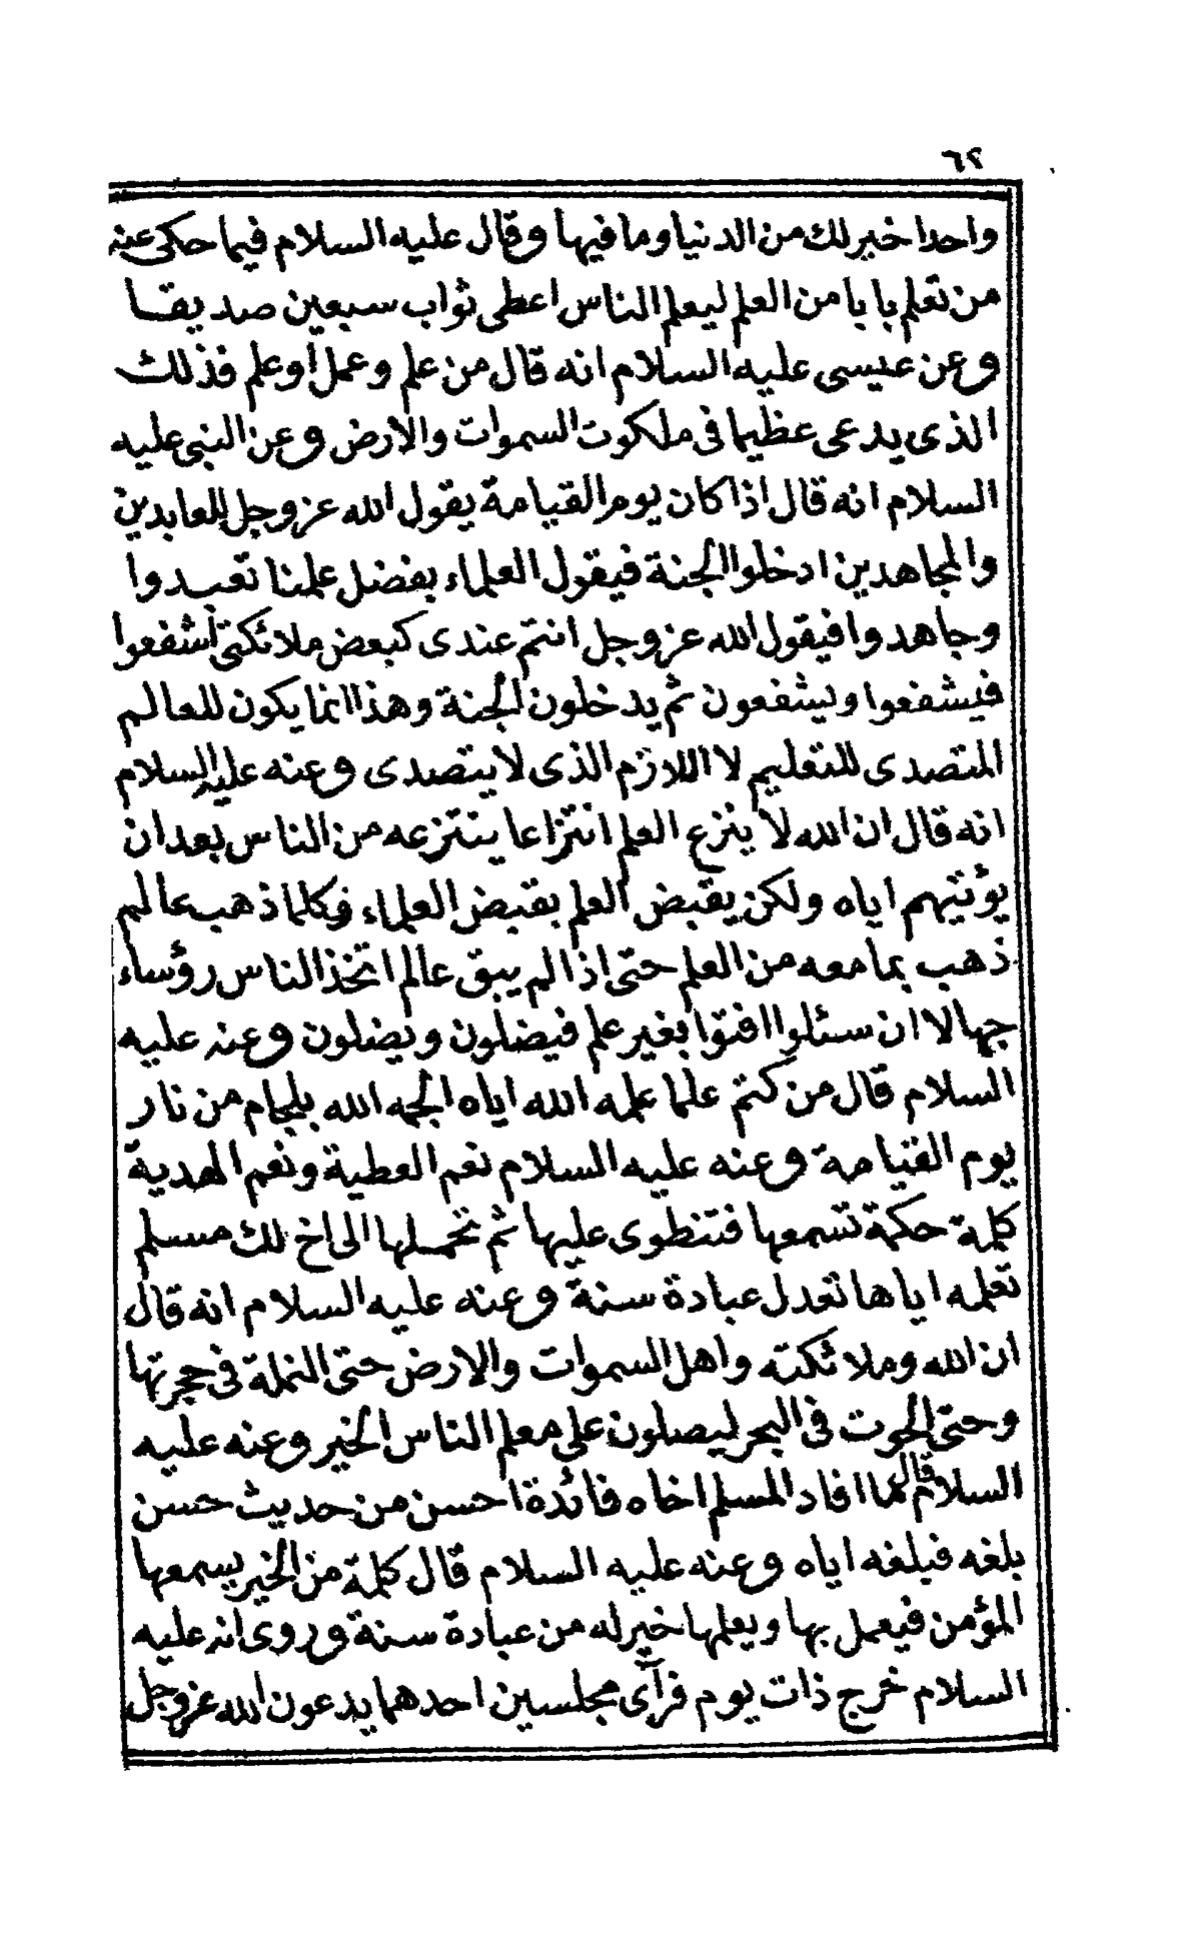 ٦٢
واحدا خير لك من الدنيا وما فيها وقال عليه السلام فيما حكى عنه
من تعلم بابا من العلم ليعلم الناس اعطى ثواب سبعين صديقا
وعن عيسى عليه السلام انه قال من علم وعمل أوعلم فذلك
الذى يدعى عظيما فى ملكوت السموات والارض وعن النبى عليه
السلام انه قال اذا كان يوم القيامة يقول الله عز وجل للعابدين
والمجاهدين ادخلوا الجنة فيقول العلماء بفضل علمنا تعبدوا
وجاهدوا فيقول الله عز وجل انتم عندى كبعض ملائكتى أشفعوا
فيشفعوا ويشفعون ثم يدخلون الجنة وهذا انما يكون للعالم
المتصدى للتعليم لا اللازم الذى لا يتصدى وعنه عليه السلام
انه قال ان الله لا ينزع العلم انتزاعا ينتزعه من الناس بعد ان
يؤتيهم اياه ولكن يقبض العلم بقبض العلماء فكلما ذهب عالم
ذهب بما معه من العلم حتى اذا لم يبق عالم اتخذ الناس رؤساء
جهالا ان سئلوا افتوا بغير علم فيضلون ويضلون وعنه عليه
السلام قال من كتم علما علمه الله اياه الجمه الله بلجام من نار
يوم القيامة وعنه عليه السلام نعم العطية ونعم الهدية
كلمة حكمة تسمعها فتنطوى عليها ثم تحملها الى اخ لك مسلم
تعلمه اياها تعدل عبادة سنة وعنه عليه السلام انه قال
ان الله وملائكته واهل السموات والارض حتى النملة فى حجرتها
وحتى الحوت فى البحر ليصلون على معلم الناس الخير وعنه عليه
السلام قال ما افاد المسلم اخاه فائدة احسن من حديث حسن
بلغه فبلغه اياه وعنه عليه السلام قال كلمة من الخير يسمعها
المؤمن فيعمل بها ويعلمها خير له من عبادة سنة وروى انه عليه
السلام خرج ذات يوم فرأى مجلسين احدهما يدعون الله عز وجل